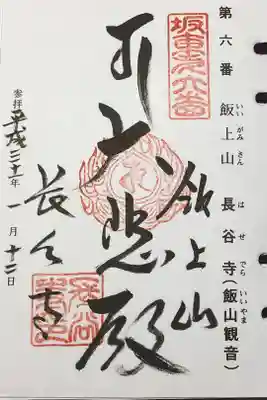 第六番 飯上山 長谷寺(飯山観音)
いいがみさん はせでら いいやま
坂東第六番
大悲殿
飯上山
長谷寺
参拝 平成三十一年 一月 十二日